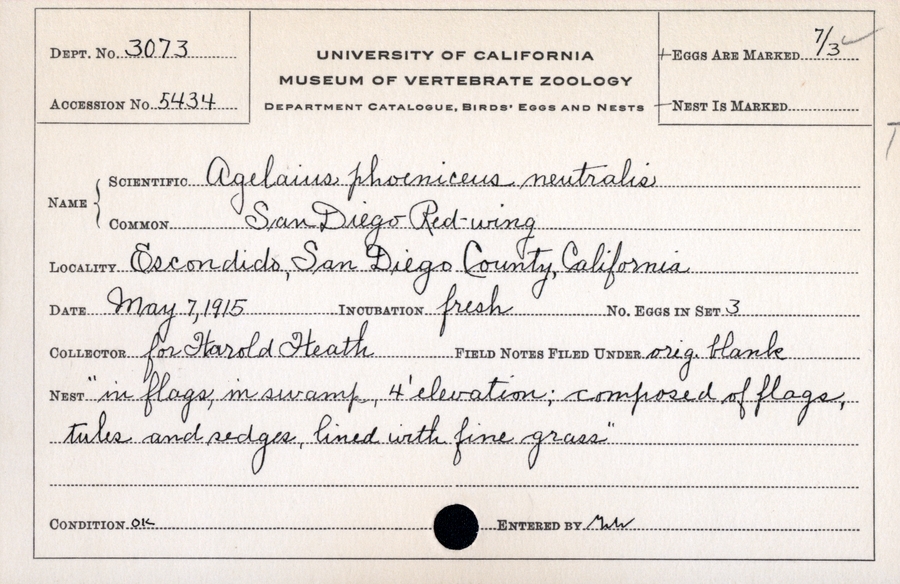 Dept. No. 3073
Accession No. 5434
UNIVERSITY OF CALIFORNIA
MUSEUM OF VERTEBRATE ZOOLOGY
Department Catalogue, Birds' Eggs and Nests
Eggs Are Marked 7/3
Nest Is Marked
Name
Scientific Agelaius phoeniceus neutralis
Common San Diego Red-wing
Locality Escondido, San Diego County, California
Date May 7, 1915 Incubation fresh No. Eggs in Set 3
Collector for Harold Heath Field Notes Filed Under orig. blank
Nest "in flags, in swamp, 4' elevation; composed of flags,
tules and sedges, lined with fine grass"
Condition OK Entered by